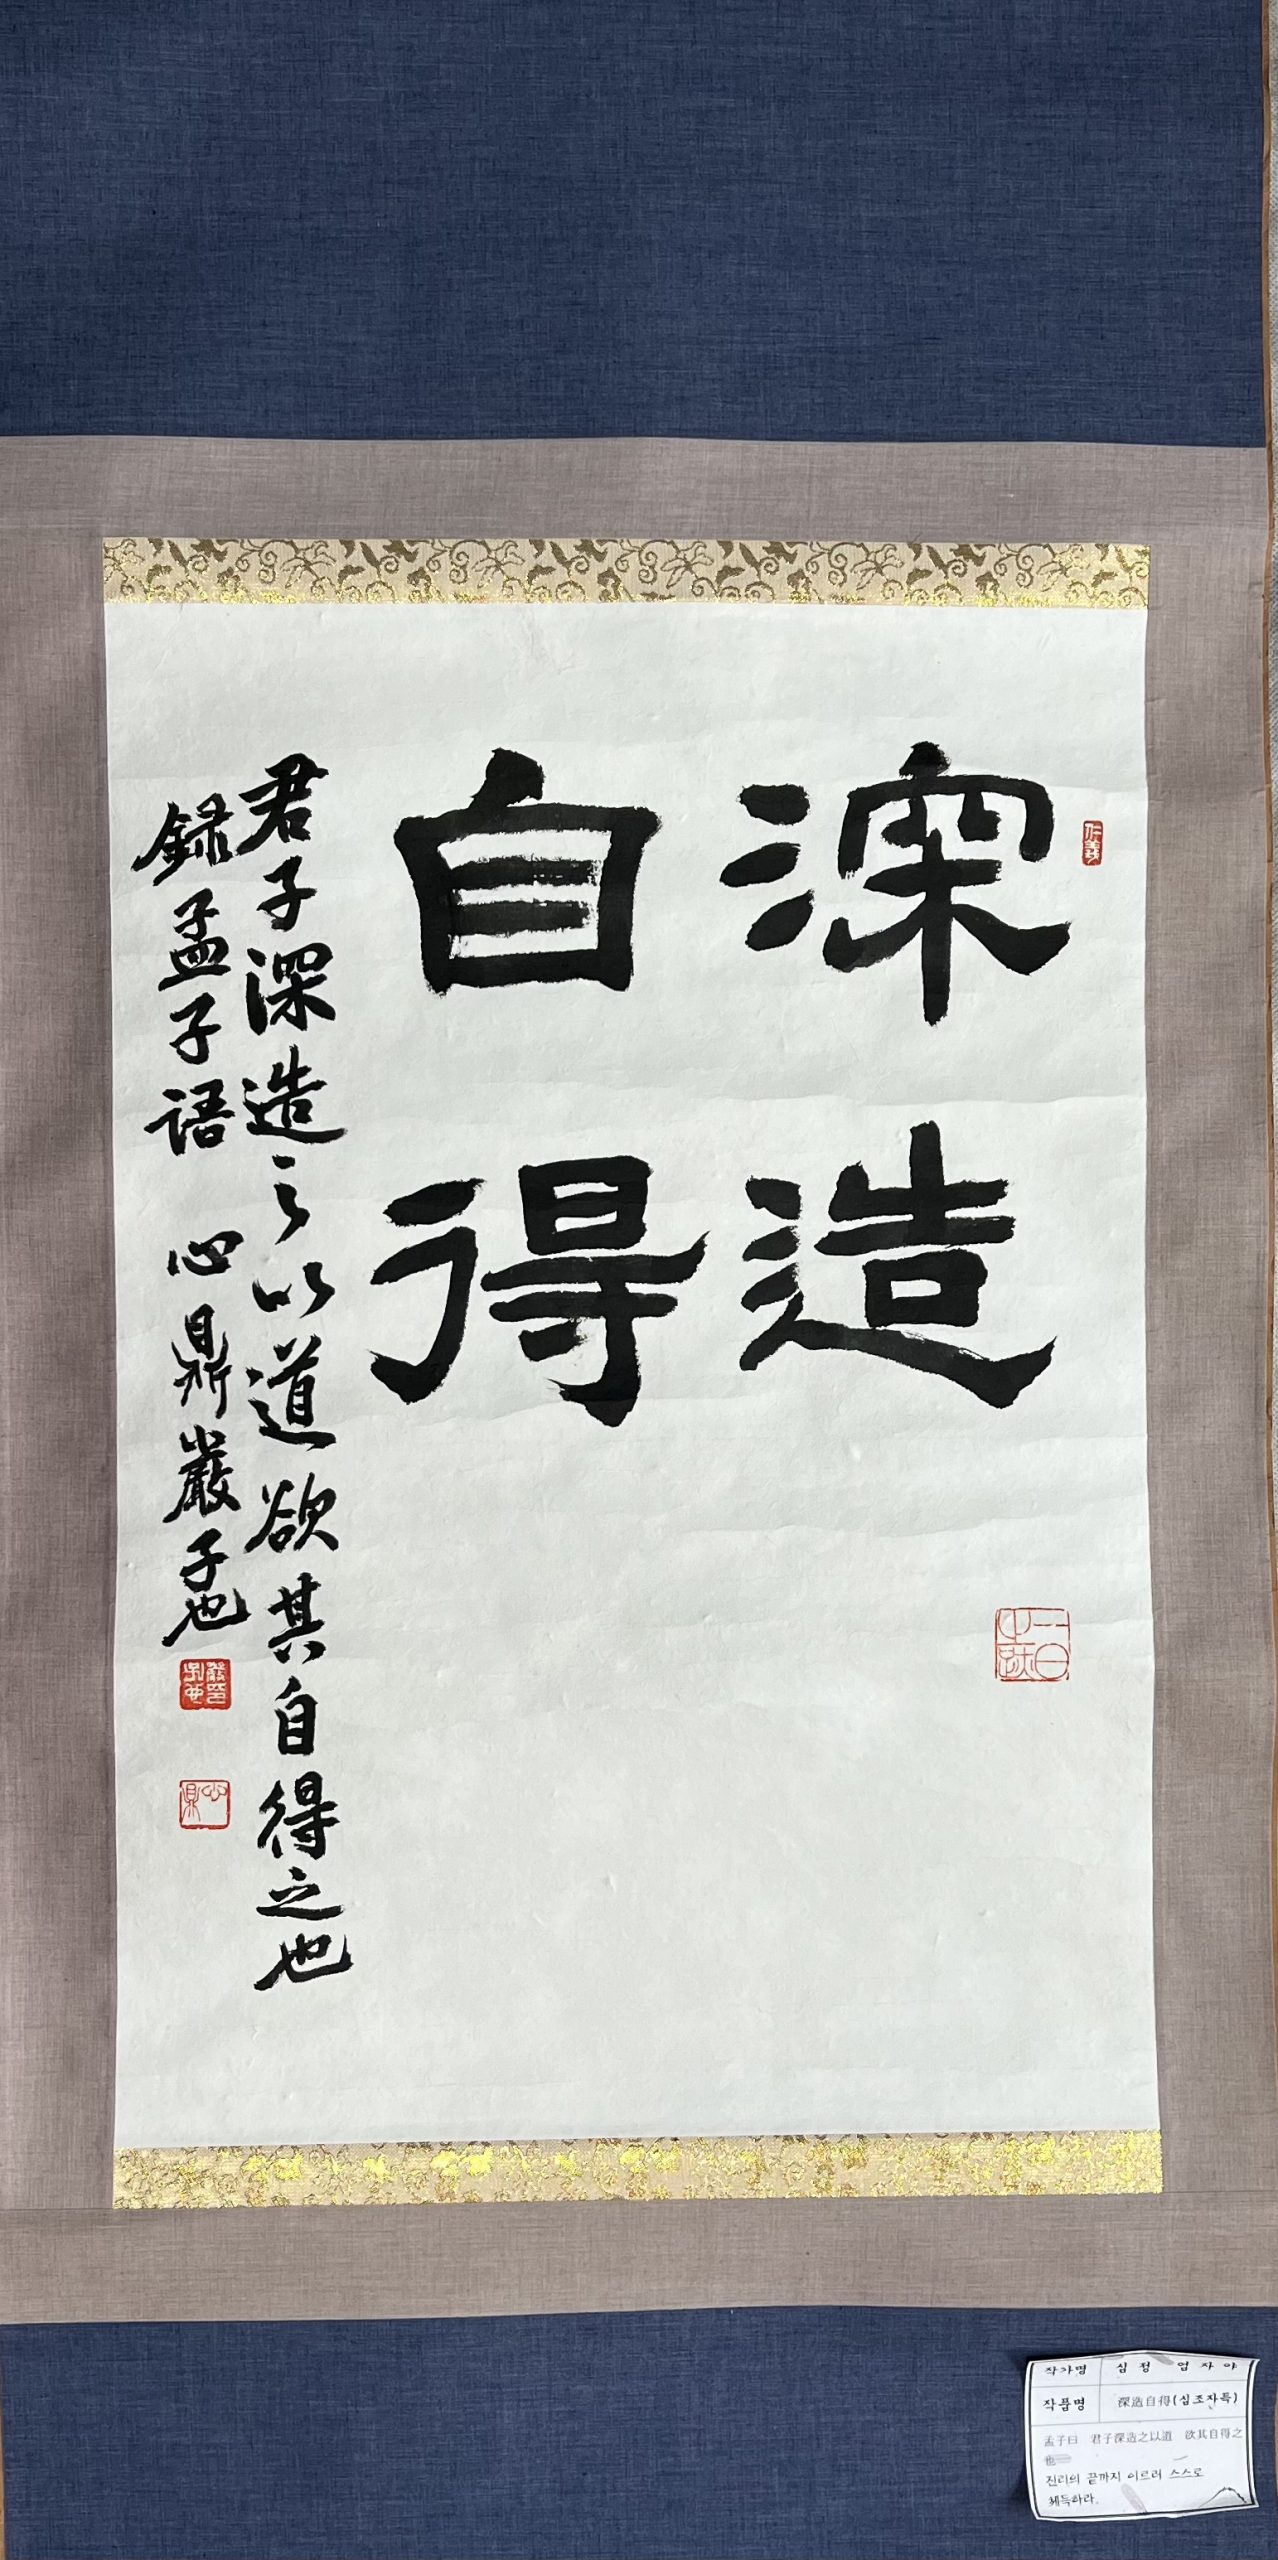 深造
自得
君子深造之以道欲其自得之也
録孟子語 心鼎嚴子也
仁義
一日
心鼎
작가명 심정 엄자야
작품명 深造自得(심조자득)
孟子曰 君子深造之以道 欲其自得之
也
진리의 끝까지 이르러 스스로
체득하라.